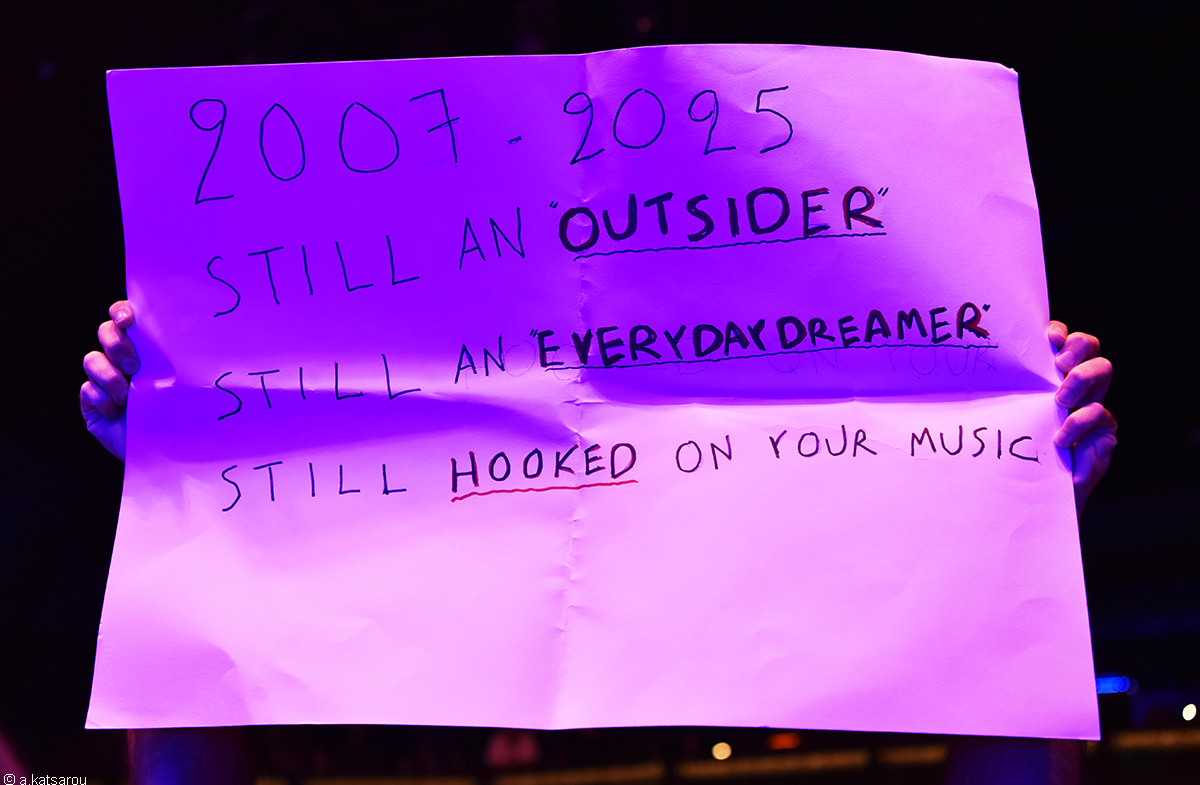 2007 - 2025
STILL AN "OUTSIDER"
STILL AN "EVERYDAYDREAMER"
STILL HOOKED ON YOUR MUSIC
© a.katsarou